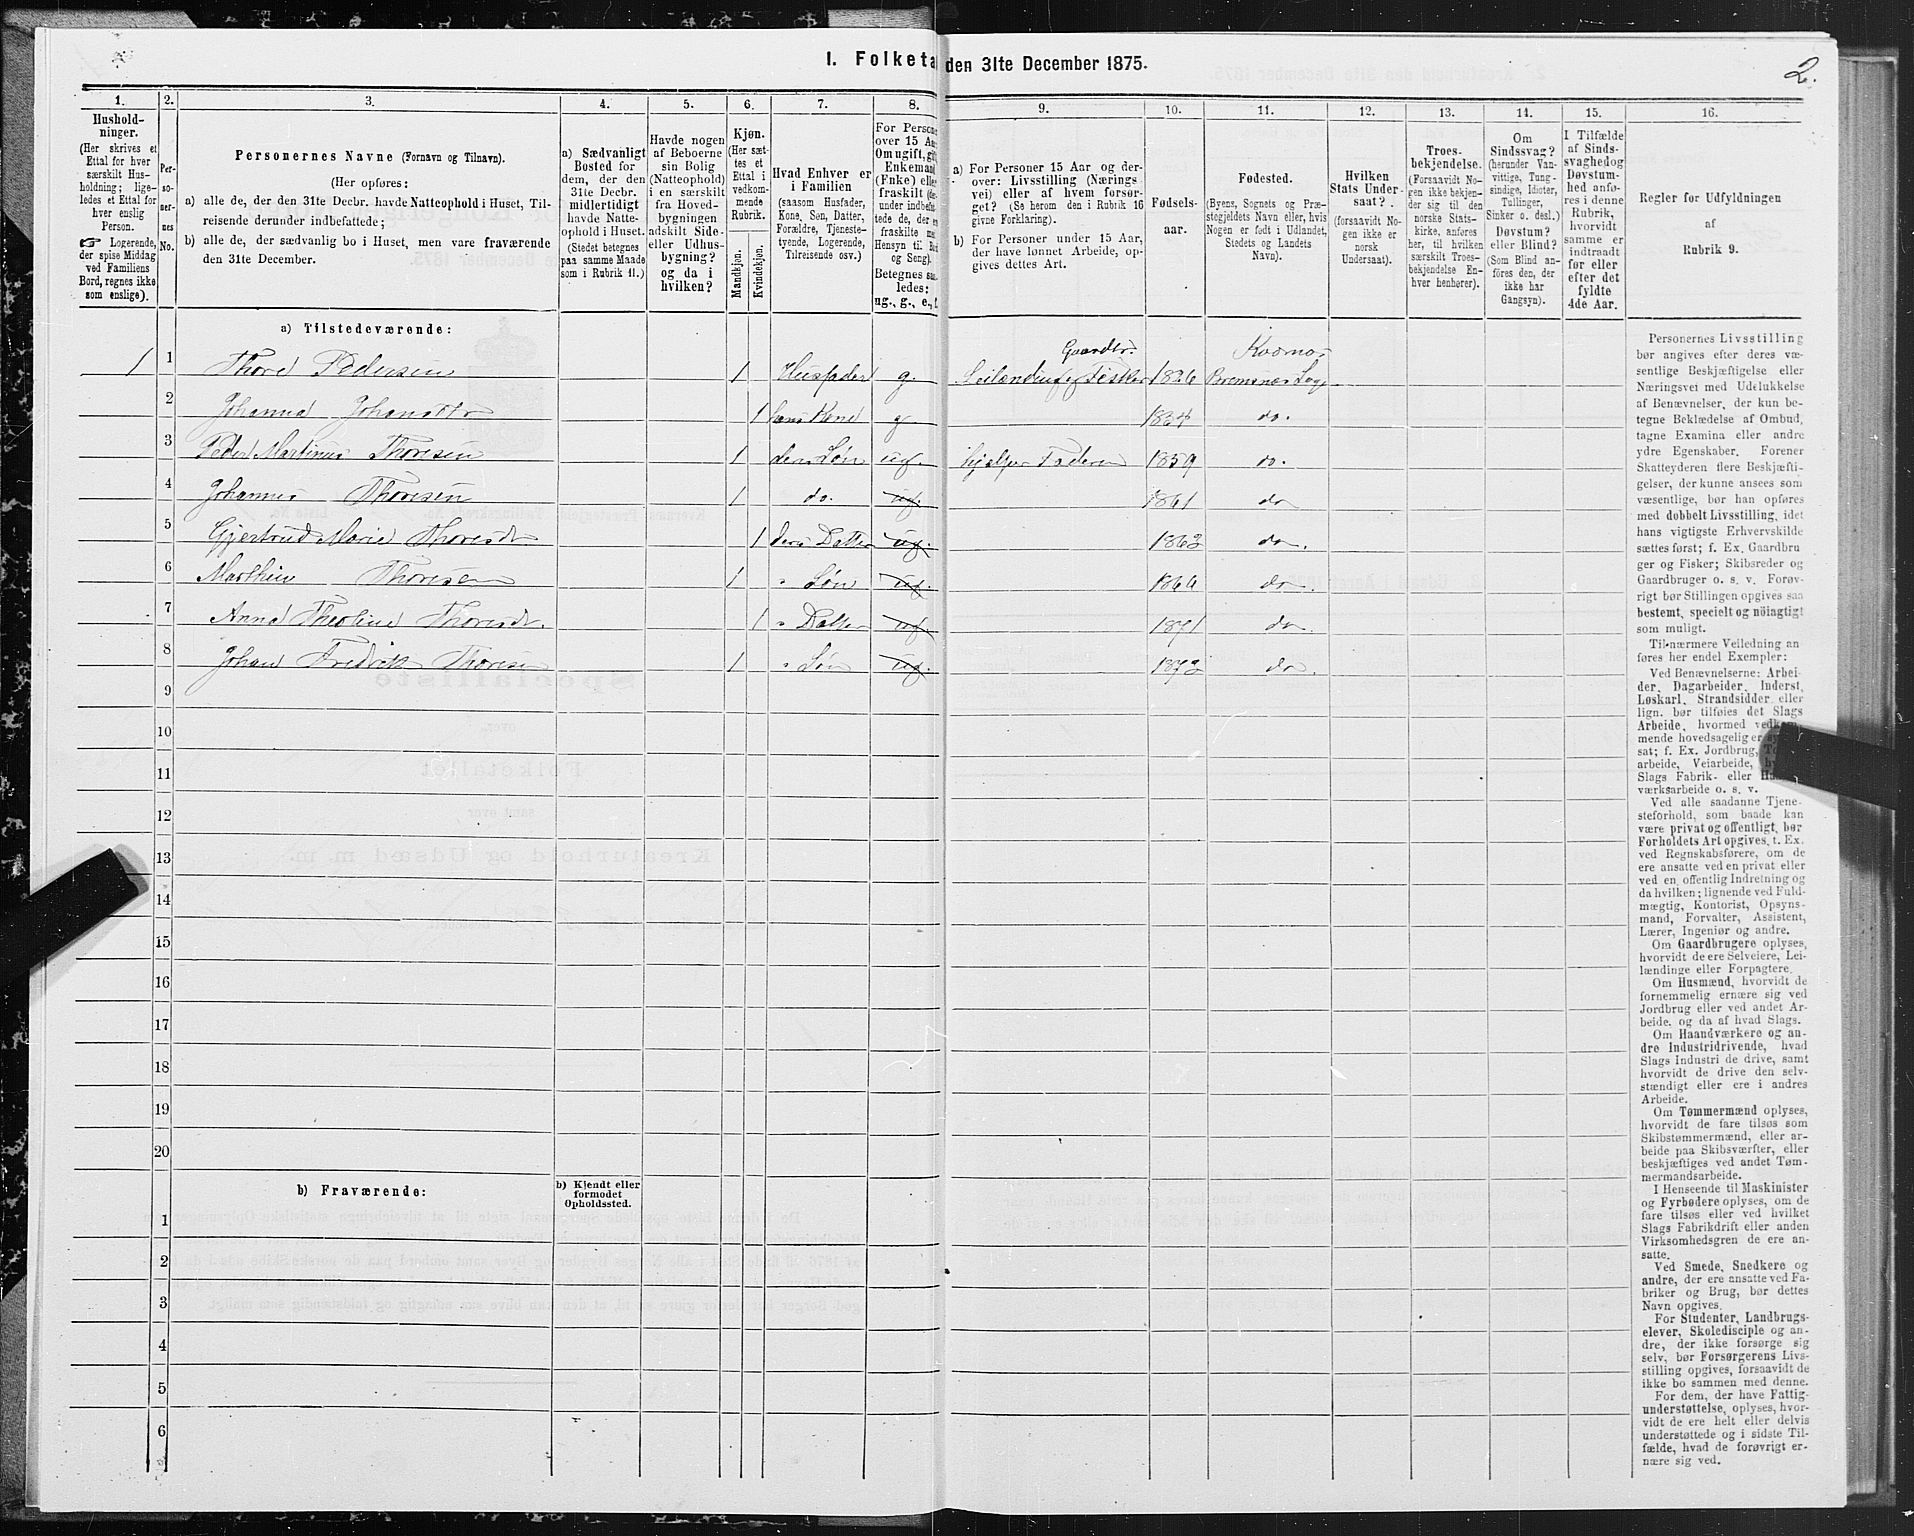 I. Folketa
den 31te December 1875.
2.
1.
Hushold-
ninger.
(Her skrives et
Ettal for hver
særskilt Hus-
holdning; lige-
ledes et Ettal for
hver enslig
Person.
☞ Logerende,
der spise Middag
ved Familiens
Bord, regnes ikke
som enslige).
2.
Per-
so-
ner-
nes
No.
3.
Personernes Navne (Fornavn og Tilnavn).
(Her opføres:
a) alle de, der den 31te Decbr. havde Natteophold i Huset, Til-
reisende derunder indbefattede;
b) alle de, der sædvanlig bo i Huset, men vare fraværende
den 31te December.
4.
a) Sædvanligt
Bosted for
dem, der den
31te Decbr.
midlertidigt
havde Natte-
ophold i Huset.
(Stedet betegnes
paa samme Maade
som i Rubrik 11.)
5.
Havde nogen
af Beboerne
sin Bolig
(Natteophold)
i en særskilt
fra Hoved-
bygningen
adskilt Side-
eller Udhus-
bygning?
og da i
hvilken?
6.
Kjøn.
(Her sæt-
tes et
Ettal i
vedkom-
mende
Rubrik.
Mandkjøn.
Kvindekjøn.
7.
Hvad Enhver er
i Familien
(saasom Husfader,
Kone, Søn, Datter,
Forældre, Tjeneste-
tyende, Logerende,
Tilreisende osv.)
8.
For Persone
over 15 Aa
Om ugift, gif
Enkemand
(Enke) elle
fraskilt (de
under indbefat
tede de, der e
fraskilte m
Hensyn til Bo
og Seng).
Betegnes saa
ledes:
ug., g., e., f.
9.
a) For Personer 15 Aar og der-
over: Livsstilling (Nærings-
vei) eller af hvem forsør-
get? (Se herom den i Rubrik 16
givne Forklaring).
b) For Personer under 15 Aar,
der have lønnet Arbeide, op-
gives dettes Art.
10.
Fødsels-
aar.
11.
Fødested.
(Byens, Sognets og Præ-
stegjeldets Navn eller, hvis
Nogen er født i Udlandet,
Stedets og Landets
Navn).
12.
Hvilken
Stats Under-
saat?
(forsaavidt No-
gen ikke er
norsk
Undersaat).
13.
Troes-
bekjendelse.
(Forsaavidt No-
gen ikke bekjen-
der sig til den
norske Stats-
kirke, anføres
her, til hvilken
særskilt Troes-
bekjendelse En-
hver henhører).
14.
Om
Sindssvag?
(herunder Van-
vittige, Tung-
sindige, Idioter,
Tullinger,
Sinker o. desl.)
Døvstum?
eller Blind?
(Som Blind an-
føres den, der
ikke har
Gangsyn).
15.
I Tilfælde
af Sinds-
svaghed og
Døvstum-
hed anfø-
res i denne
Rubrik,
hvorvidt
samme er
indtraadt
før eller
efter det
fyldte
4de Aar.
16.
Regler for Udfyldningen
af
Rubrik 9.
a) Tilstedeværende:
1 1 Thore Pedersen 1 Husfader g. Gaardbr. Leilænding Fisker 1826 Bremsnæs Sogn
2 Johanna 1 hans Kone g 1834 do.
3 Peder Martinus Thoresen 1 deres Søn ug. hjelper Faderen 1859 do.
4 Johannes Thoresen 1 do. ug. 1861 do
5 Gjertrud Marie Thoresdr 1 deres Datter ug. 1862 do.
6 Thoresen 1 " Søn ug. do.
7 Anna Thoresdr. 1 " Datter ug. 1871 do.
8 Johan Fredrik Thoresen 1 " Søn ug. 1872 do.
9
10
11
12
13
14
15
16
17
18
19
20
b) Fraværende:
b) Kjendt eller
formodet
Opholdssted.
1
2
3
4
5
6
Personernes Livsstilling
bør angives efter deres væ-
sentlige Beskjæftigelse eller
Næringsvei med Udelukkelse
af Benævnelser, der kun be-
tegne Beklædelse af Ombud,
tagne Examina eller andre
ydre Egenskaber. Forener
Skatteyderen flere Beskjæfti-
gelser, der kunne ansees som
væsentlige, bør han opføres
med dobbelt Livsstilling, idet
hans vigtigste Erhvervskilde
sættes først; f. Ex. Gaardbru
ger og Fisker; Skibsreder og
Gaardbruger o. s. v. Forøv-
rigt bør Stillingen opgives saa
bestemt, specielt og nöiagtigt
som muligt.
Til nærmere Veiledning an
føres her endel Exempler:
Ved Benævnelserne: Arbei-
der, Dagarbeider, Inderst,
Løskarl, Strandsidder eller
lign. bør tilføies det Slags
Arbeide, hvormed vedkom-
mende hovedsagelig er
sat; f. Ex. Jordbrug,
arbeide, Veiarbeide,
Slags Fabrik- eller
værksarbeide o. s. v.
Ved alle saadanne Tjene-
steforhold, som baade kan
være privat og offentligt, bør
Forholdets Art opgives, t. Ex.
ved Regnskabsførere, om de
ere ansatte ved en privat eller
ved en offentlig Indretning og
da hvilken; lignende ved Fuld-
mægtig, Kontorist, Opsyns-
mand, Forvalter, Assistent,
Lærer, Ingeniør og andre.
Om Gaardbrugere oplyses,
hvorvidt de ere Selveiere, Lei-
lændinge eller Forpagtere.
Om Husmænd, hvorvidt de
fornemmelig ernære sig ved
Jordbrug eller ved andet Ar-
beide, og da af hvad Slags.
Om Haandværkere og an-
dre Industridrivende, hvad
Slags Industri de drive, samt
hvorvidt de drive den selv-
stændigt eller ere i andres
Arbeide.
Om Tømmermænd oplyses,
hvorvidt de fare tilsøs som
Skibstømmermænd, eller ar-
beide paa Skibsværfter, eller
beskjæftiges ved andet Tøm-
mermandsarbeide.
I Henseende til Maskinister
og Fyrbødere oplyses, om de
fare tilsøs eller ved hvilket
Slags Fabrikdrift eller anden
Virksomhedsgren de ere an-
satte.
Ved Smede, Snedkere og
andre, der ere ansatte ved Fa-
briker og Brug, bør dettes
Navn opgives.
For Studenter, Landbrugs-
elever, Skoledisciple og an-
dre, der ikke forsørge sig
selv, bør Forsørgerens Livs-
stilling opgives, forsaavidt de
ikke bo sammen med denne.
For dem, der have Fattig-
understøttelse, oplyses, hvor-
vidt de ere helt eller delvis
understøttede og i sidste Til-
fælde, hvad de forøvrigt er-
nære sig ved.